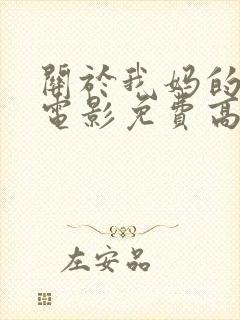 關於我媽的
電影免費高
左安品